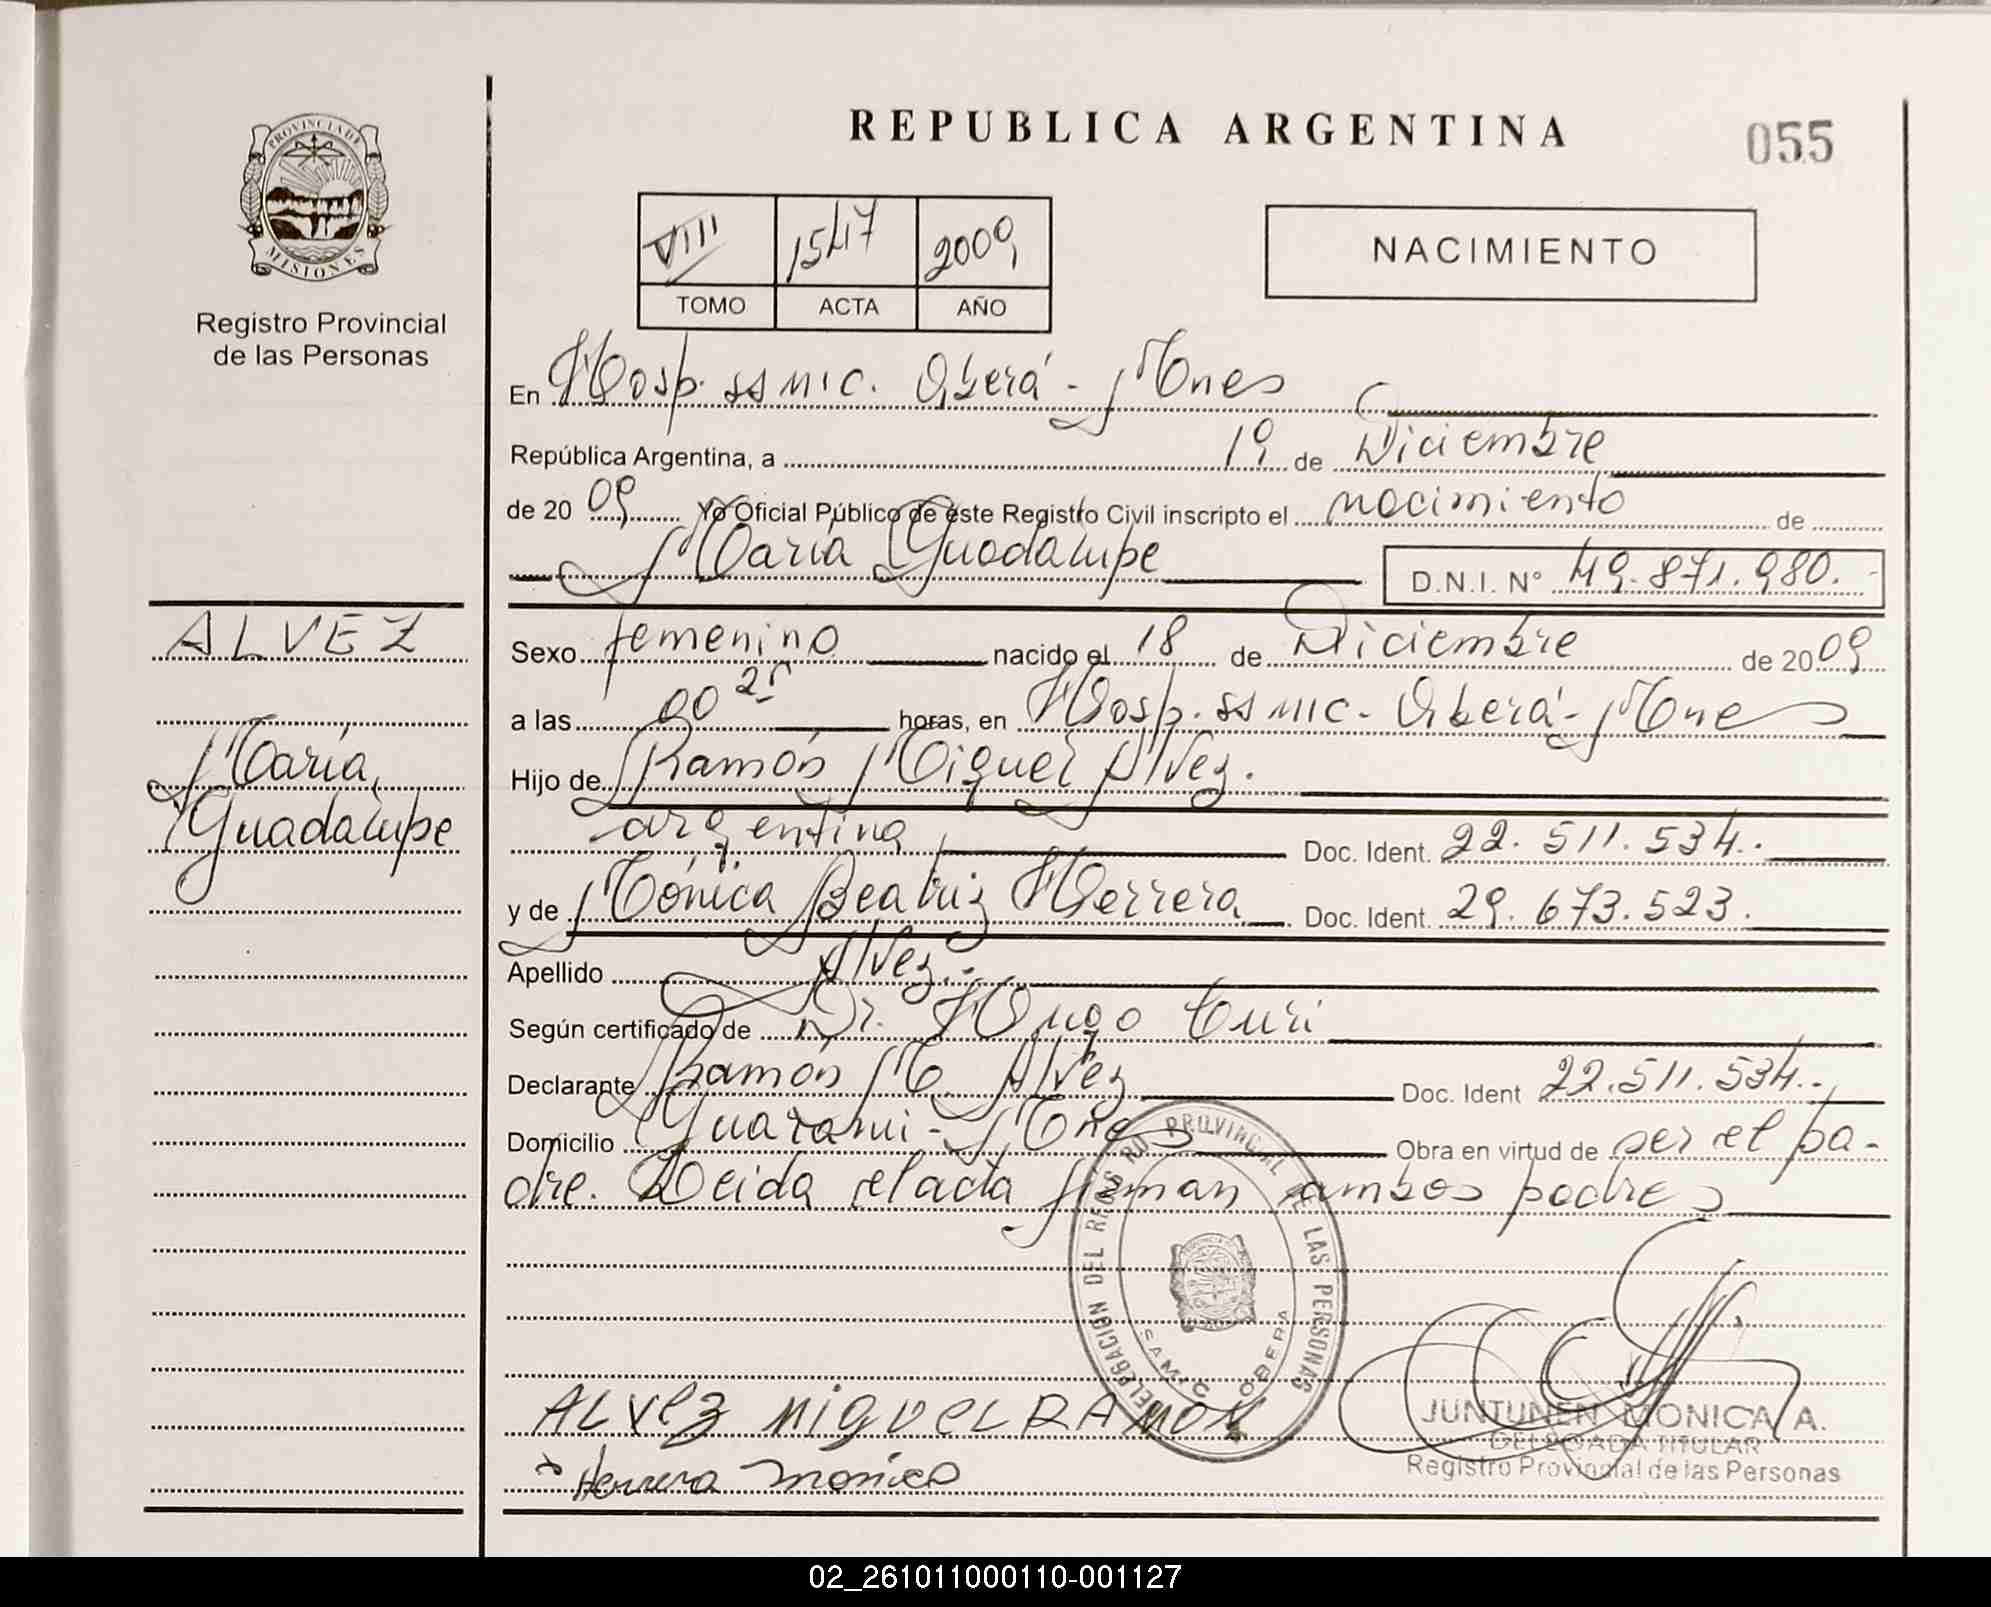 REPUBLICA ARGENTINA
055
PROVINCIA DE
MISIONES
Registro Provincial
de las Personas
VIII 1547 2009
TOMO ACTA AÑO
NACIMIENTO
En Hosp. SSMIC. Oberá - Mnes
República Argentina, a 19 de Diciembre
de 2009 Yo Oficial Público de este Registro Civil inscripto el nacimiento de
María Guadalupe D.N.I. Nº 49.871.980.-
ALVEZ
María
Guadalupe
Sexo femenino nacido el 18 de Diciembre de 2009
a las 00 25 horas, en Hosp. SSMIC - Oberá - Mnes
Hijo de Ramón Miguel Alvez.
argentina Doc. Ident. 22.511.534.-
y de Mónica Beatriz Herrera Doc. Ident. 29.673.523.
Apellido Alvez.-
Según certificado de Dr. Hugo Curi
Declarante Ramón M Alvez Doc. Ident 22.511.534.-
Domicilio Guaraní - Mnes Obra en virtud de ser el pa-
dre. Leida el acta firman ambos padres
DELEGACION DEL REGISTRO PROVINCIAL DE LAS PERSONAS
SAMIC OBERA
ALVEZ MIGUEL RAMON
Herrera Monica
JUNTUNEN MONICA A.
DELEGADA TITULAR
Registro Provincial de las Personas
02_261011000110-001127